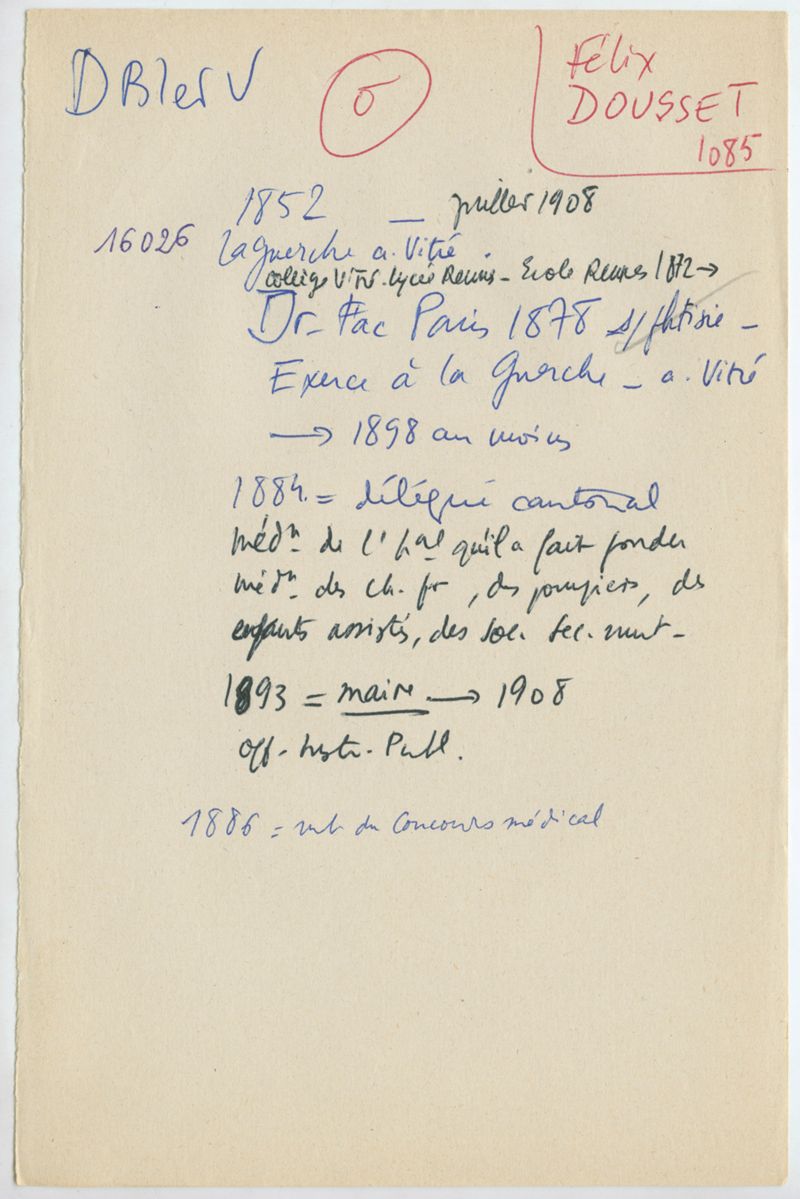 D B1er V
σ
Félix
DOUSSET
1085
1852 — juillet 1908
16026 La Guerche a. Vitré.
collège Vitré. lycée Rennes - Ecole Rennes 1872 →
Dr - Fac Paris 1878 s/ phtisie -
Exerce à la Guerche - a. Vitré
→ 1898 au moins
1884. = délégué cantonal
médn. de l'hal qu'il a fait fonder
médn. des ch. fr, des pompiers, des
enfants assistés, des soc. sec. mut -
1893 = maire → 1908
off - Instr. Publ.
1886 = mb du Concours médical